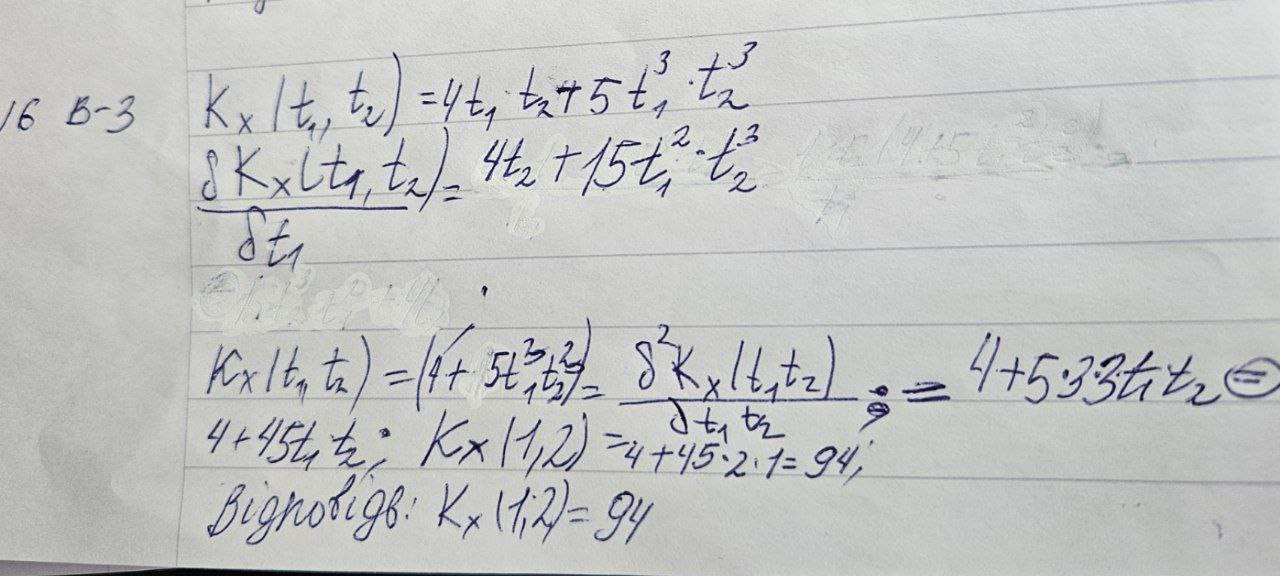 16 В-3
Kx(t₁, t₂) = 4t₁ · t₂ + 5t₁³ · t₂³
δKx(t₁, t₂) / δt₁ = 4t₂ + 15t₁² · t₂³
Kx(t₁, t₂) = (4 + 5t₁³t₂²) = δ²Kx(t₁t₂) / δt₁ t₂ ; = 4+5·3·3t₁t₂ =
4+45t₁t₂; Kx(1,2) = 4+45·2·1=94;
Відповідь: Kx(1;2) = 94